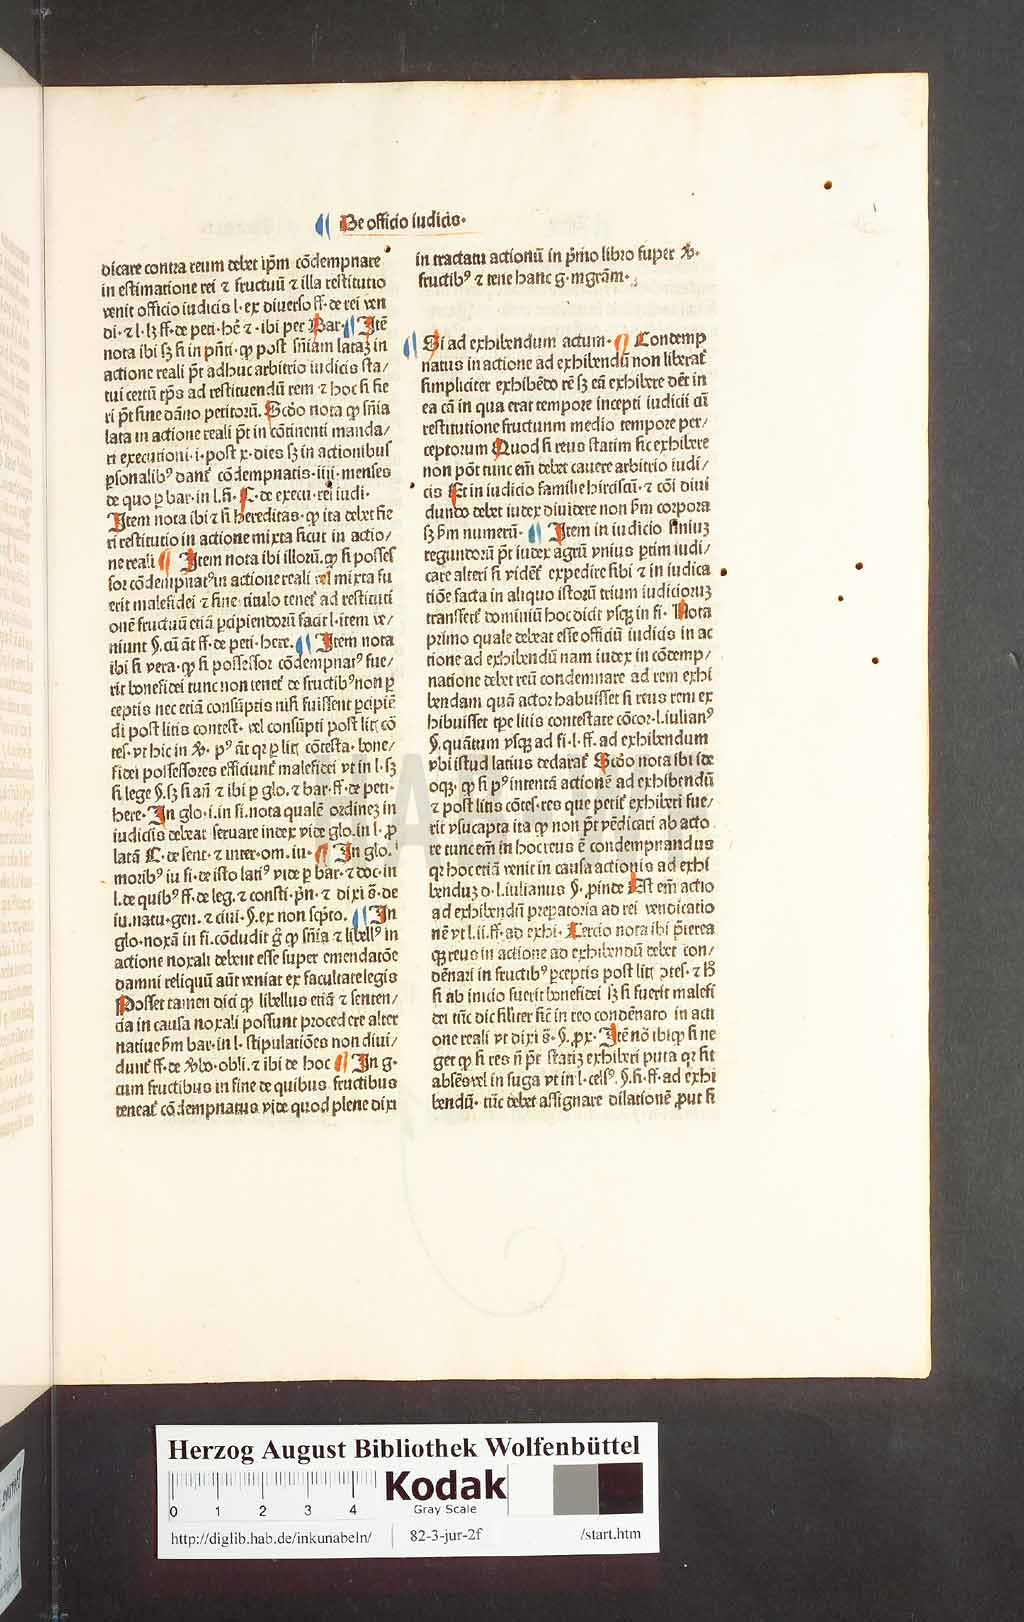 De officio iudicis.
dicare contra reum debet ip̄m cōdempnare
in estimatione rei ⁊ fructuū ⁊ illa restitutio
venit officio iudicis l. ex diuerso ff. de rei ven
di. ⁊ l. lꝫ ff. de peti. hē ⁊ . ibi per Bar. Itē
nota ibi sꝫ si in pn̄ti. ꝙ post sn̄iam lataꝫ in
actione reali p̄t adhuc arbitrio iudicis sta/
tui certū tp̄s ad restituendū rem ⁊ hoc si fie
ri p̄t sine dāno petitorū. Scdo nota ꝙ sn̄ia
lata in actione reali p̄t in cōtinenti manda/
ri executioni .i. post x. dies sꝫ in actionibus
ꝑsonalibꝰ dant᷑ cōdempnatis .iiij. menses
de quo ꝑ bar. in l. fi. C. de execu. rei iudi.
Item nota ibi ⁊ si hereditas. ꝙ ita debet fie
ri restitutio in actione mixta sicut in actio/
ne reali Item nota ibi illorū. ꝙ si posses
sor cōdempnat᷑ in actione reali vel mixta fu
erit malefidei ⁊ sine titulo tenet᷑ ad restituti
onē fructuū etiā ꝑcipiendorū facit l. item ve/
niunt §. cū āt ff. de peti. here. Item nota
ibi si vera. ꝙ si possessor cōdempnatꝰ fue/
rit bonefidei tunc non tenet᷑ de fructibꝰ non ꝑ
ceptis nec etiā consūptis nisi fuissent ꝑcipiē
di post litis contest. vel consūpti post litꝭ cō
tes. vt hic in
fidei possessores efficiunt᷑ malefidei vt in l. sꝫ
si lege §. sꝫ si an̄ ⁊ ibi ꝑ glo. ⁊ bar. ff. de peti.
here. In glo. i. in fi. nota qualē ordineꝫ in
iudiciis debeat seruare iudex vide glo. in l. ꝓ
latā C. de sent. ⁊ inter. om. iu. In glo.
moribꝰ iu fi. de isto latiꝰ vide ꝑ bar. ⁊ doc. in
l. de quibꝰ ff. de leg. ⁊ consti. pn̄. ⁊ dixi s̄. de
iu. natu. gen. ⁊ ciui. §. ex non scp̄to. In
glo. noxā in fi. cōdudit ꝙ sn̄ia ⁊ libellꝰ in
actione noxali debent esse super emendatōe
damni reliquū aūt veniat ex facultate legis
Posset tamen dici ꝙ libellus etiā ⁊ senten/
cia in causa noxali possunt procedere alter
natiue hm̄ bar. in l. stipulatiōes non diui/
dunt᷑ ff. de ⁊ ibi de hoc In g.
cum fructibus in fine de quibus fructibus
teneat᷑ cōdempnatus vide quod plene dixi
in tractatu actionū in p̄mo libro super
fructibꝰ ⁊ tene hanc g. mgrām.
Si ad exhibendum actum. Condemp
natus in actione ad exhibendū non liberat᷑
simpliciter exhibēdo rē sꝫ eā exhibere dēt in
ea cā in qua erat tempore incepti iudicii cū
restitutione fructuum medio tempore per/
ceptorum Quod si reus statim sic exhibere
non pōt tunc em̄ debet cauere arbitrio iudi/
cis Et in iudicio familie hirciscū. ⁊ cōi diui
dundo debet iudex diuidere non hm̄ corpora
sꝫ hm̄ numerū. Item in iudicio finiuꝫ
regundorū p̄t iudex agrū vnius ꝑtim iudi/
care alteri si videt᷑ expedire sibi ⁊ in iudica
tiōe facta in aliquo istorū trium iudicioruꝫ
transfert᷑ dominiū hoc dicit vsqꝫ in fi. Nota
primo quale debeat esse officiū iudicis in ac
tione ad exhibendū nam iudex in cōdemp/
natione debet reū condemnare ad rem exhi
bendam quā actor habuisset si reus rem ex
hibuisset tp̄e litis contestate cōcor. l. iulianꝰ
§. quātum vsqꝫ ad fi. l. ff. ad exhibendum
vbi istud latius declarat᷑ Scdo nota ibi ide
oqꝫ. ꝙ si pꝰ intentā actionē ad exhibendū
⁊ post litis cōtes. res que petit᷑ exhiberi fue/
rit vsucapta ita ꝙ non p̄t vēdicari ab acto
re tunc em̄ in hoc reus ē condempnandus
qꝛ hoc etiā venit in causa actionis ad exhi
benduꝫ d. l. iulianus §. ꝓinde Est em̄ actio
ad exhibendū preparatoria ad rei vendicatio
nē vt l. ii. ff. ad exhi. Tercio nota ibi p̄terea
qꝫ reus in actione ad exhibendū debet con/
dēnari in fructibꝰ ꝑceptis post litꝭ ⁊ hꝫ
si ab inicio fuerit bonefidei lꝫ si fuerit malefi
dei tūc dic similiter sic̄ in reo condēnato in acti
one reali vt dixi s̄. §. ꝓx. Itē nō ibi ꝙ si ne
get ꝙ si res n̄ p̄t statiꝫ exhiberi puta qꝛ sit
absēs vel in fuga vt in l. celsꝰ. §. fi. ff. ad exhi
bendū. tūc debet assignare dilationē ꝓut si
Herzog August Bibliothek Wolfenbüttel
0 1 2 3 4
Kodak
Gray Scale
http://diglib.hab.de/inkunabeln/ 82-3-jur-2f /start.htm
HAB